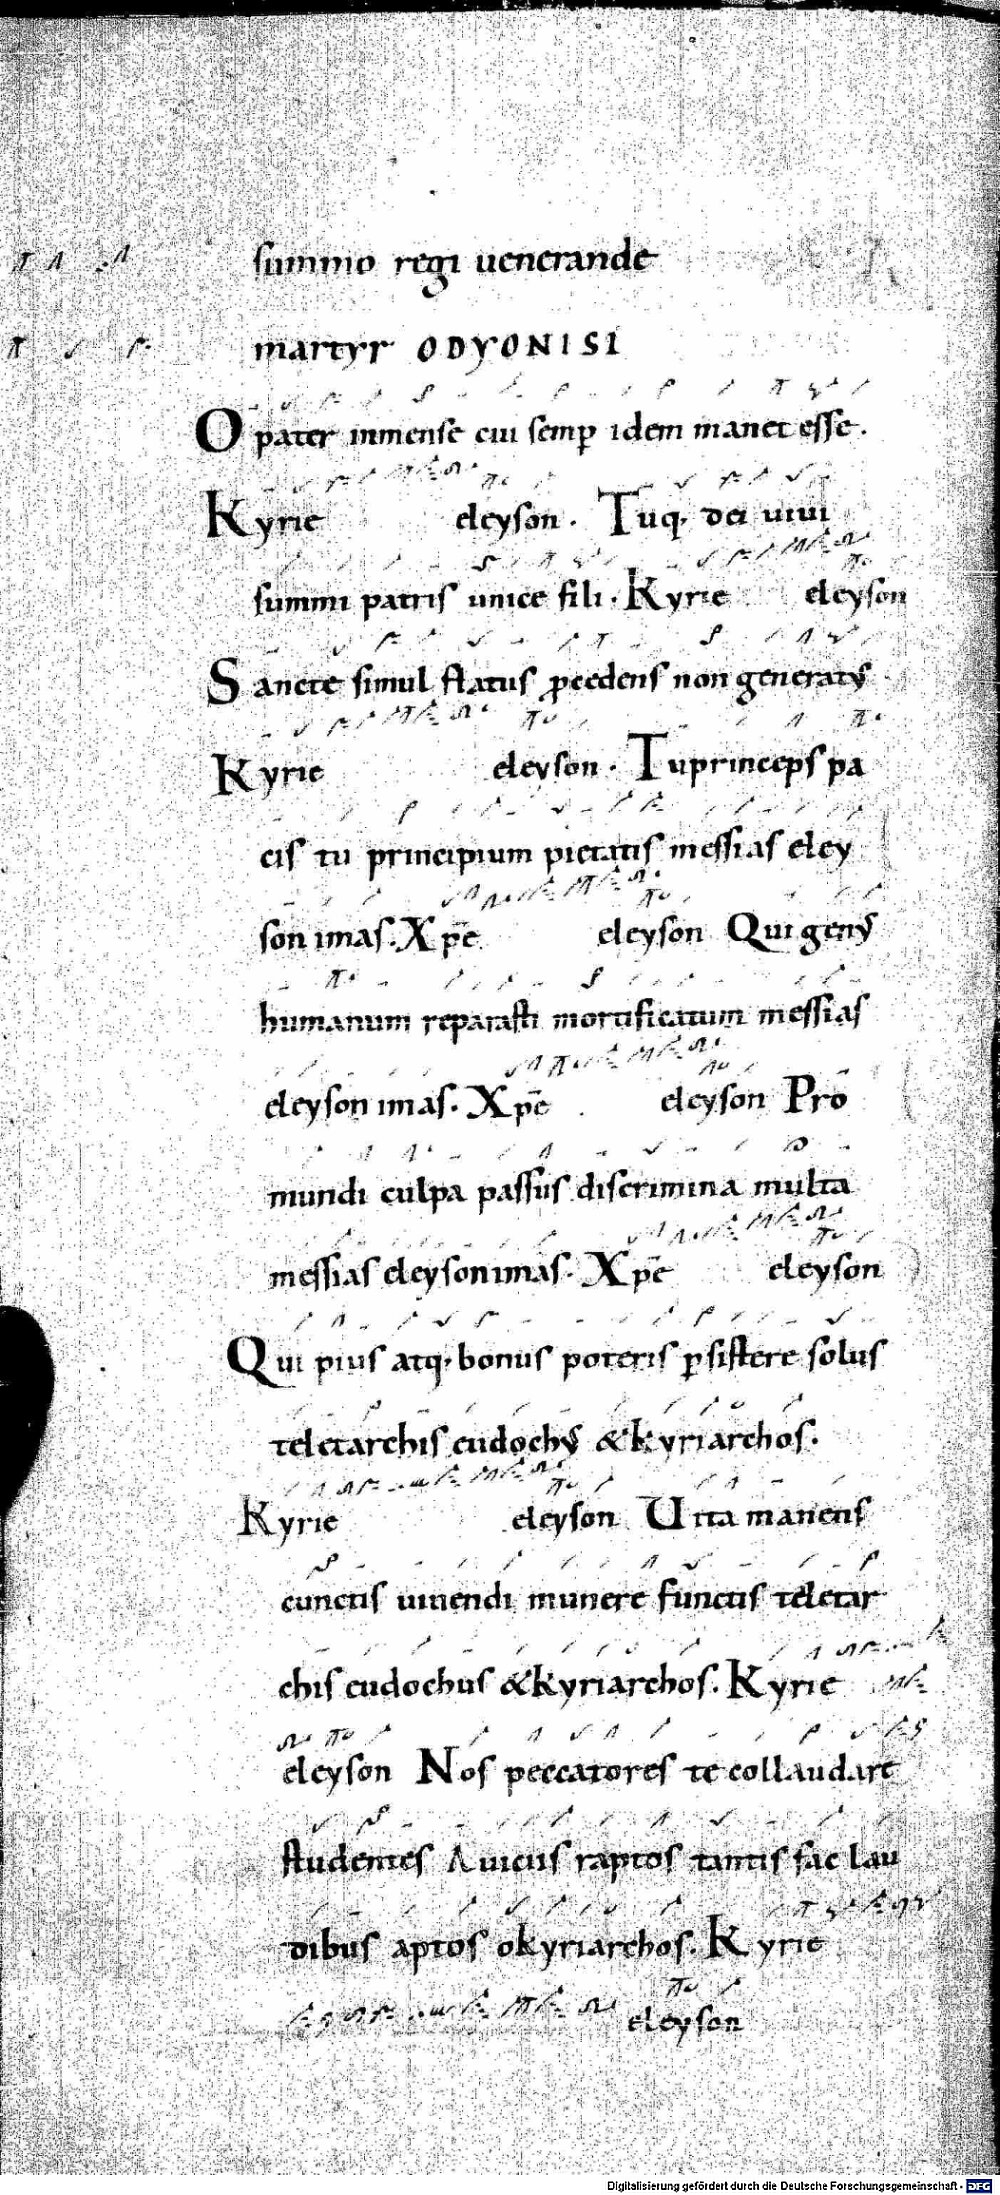 summo regi uenerande
martyr ODYONISI
O pater inmense cui semꝑ idem manet esse.
Kyrie eleyson. Tuq; dei uiui
summi patris unice fili. Kyrie eleyson
Sancte simul flatus ꝓcedens non generatꝰ
Kyrie eleyson. Tu princeps pa
cis tu principium pietatis messias eley
son imas. Xp̄e eleyson Qui genꝰ
humanum reparasti mortificatum messias
eleyson imas. Xp̄e eleyson Pro
mundi culpa passus discrimina multa
messias eleyson imas. Xp̄e eleyson
Qui pius atq; bonus poteris ꝑsistere solus
teletarchis eudochꝰ & kyriarchos.
Kyrie eleyson Uita manens
cunctis uiuendi munere functis teletar
chis eudochus & kyriarchos. Kyrie
eleyson Nos peccatores te collaudare
studentes A uiciis raptos tantis fac lau
dibus aptos o kyriarchos. Kyrie
eleyson
Digitalisierung gefördert durch die Deutsche Forschungsgemeinschaft - DFG